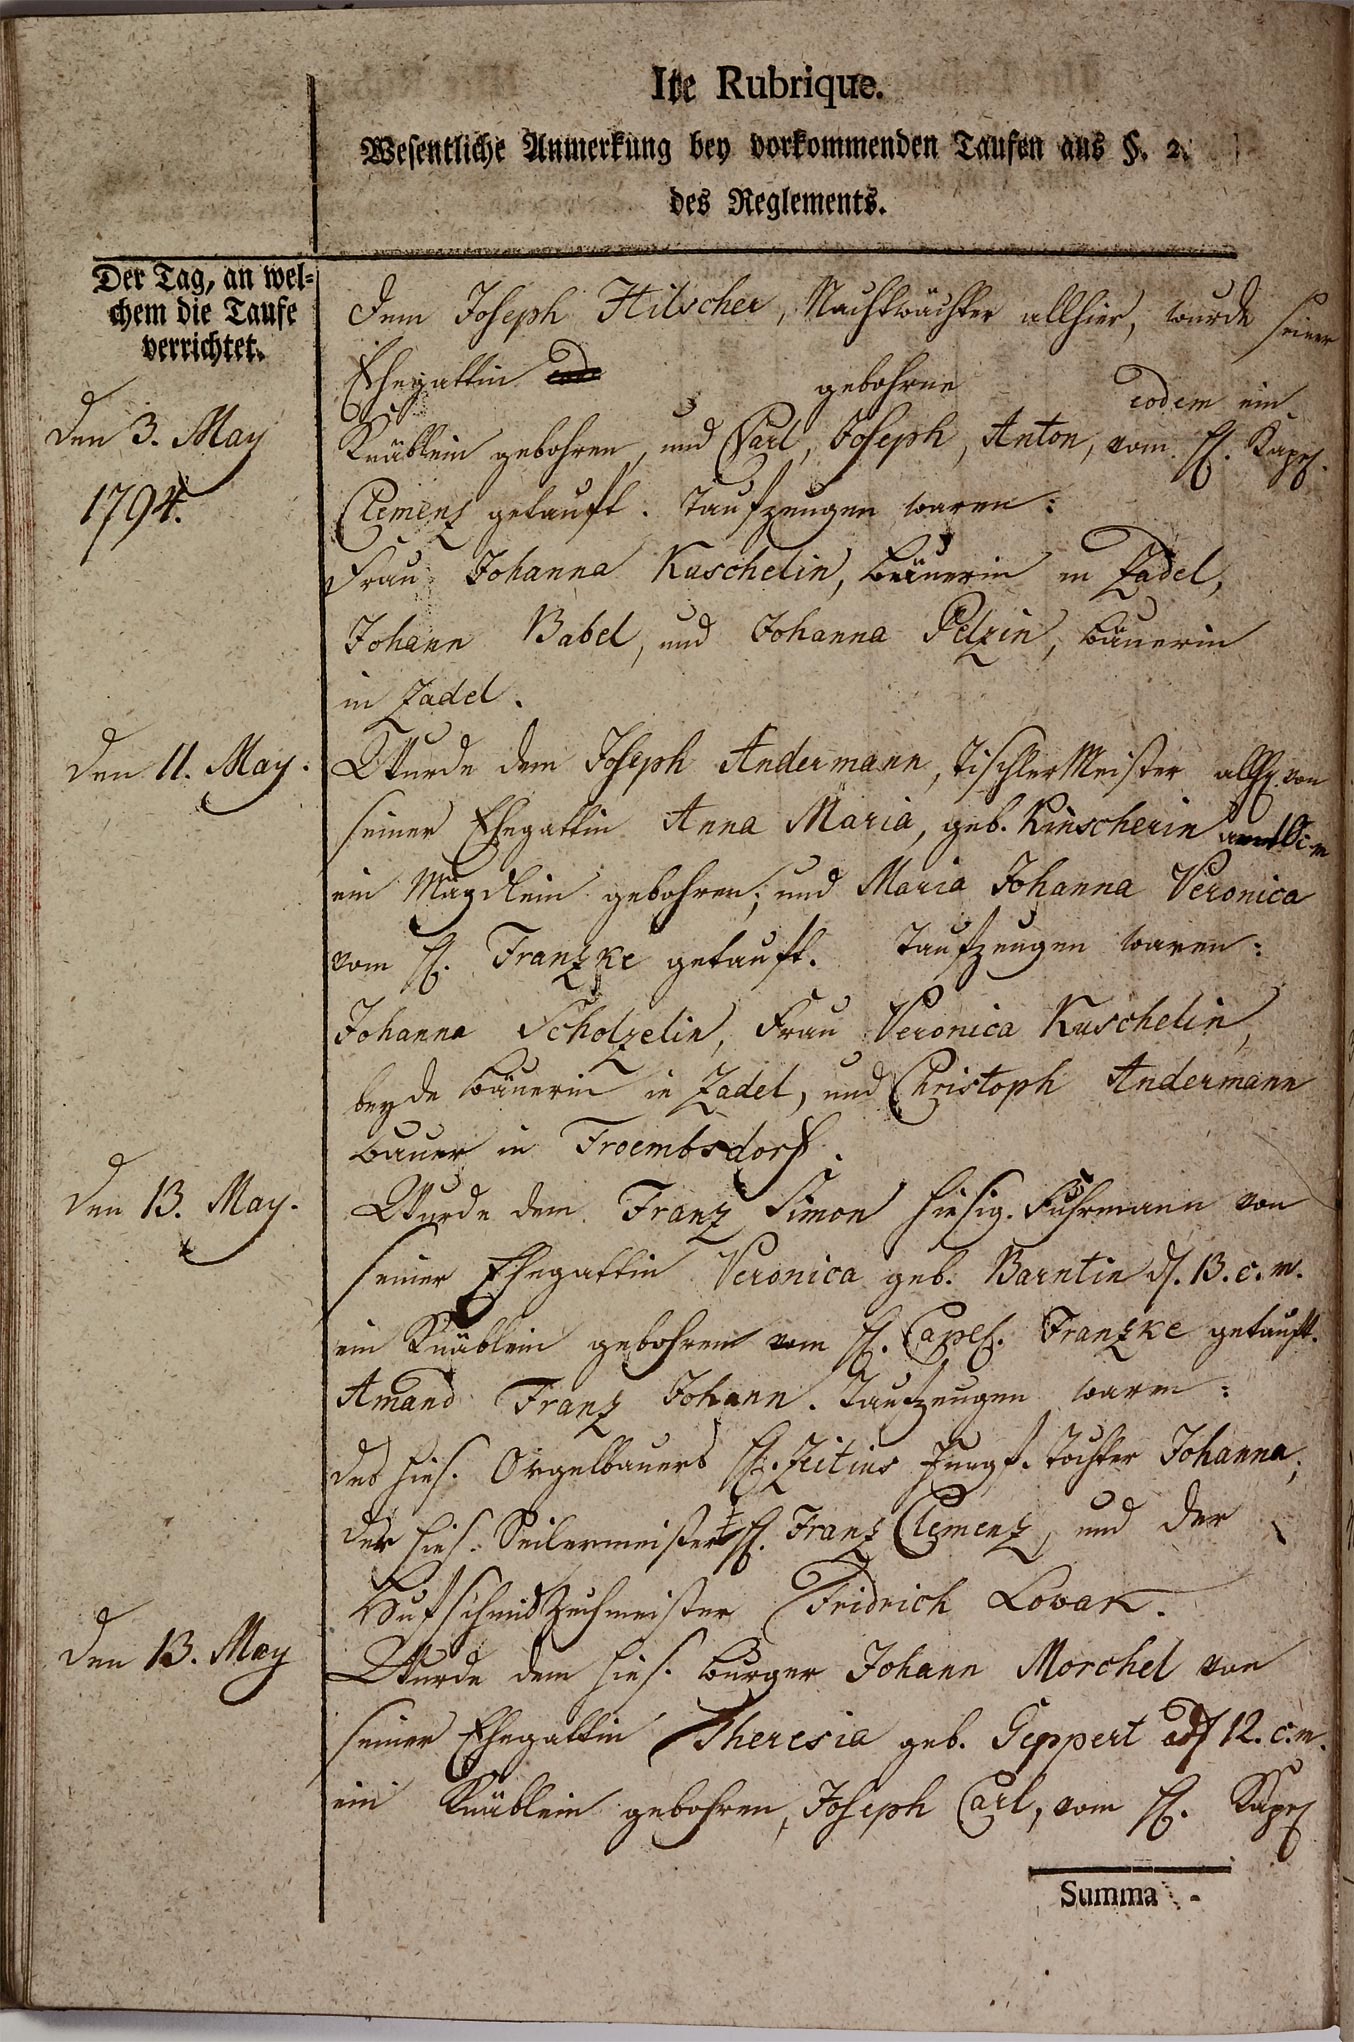 Ite Rubrique.
Wesentliche Anmerkung bey vorkommenden Taufen aus §. 2.
des Reglements.
Der Tag, an wel-
chem die Taufe
verrichtet.
Den 3. May
1794.
Dem Joseph Hilscher, Nachtwächter allhier, wurde seiner
Ehegattin gebohrne eodem ein
Knäblein gebohren, und Carl, Joseph, Anton, vom H. Kapl.
Clemenz getauft. Taufzeugen waren:
Frau Johanna Kuschelin, Bäuerin in Zadel,
Johann Babel, und Johanna Pelzin, Bäuerin
in Zadel.
Den 11. May.
Wurde dem Joseph Andermann, Tischler Meister allh. von
seiner Ehegattin Anna Maria, geb. Kinscherin
ein Mägdlein gebohren; und Maria Johanna Veronica
vom H. Franzke getauft. Taufzeugen waren:
Johanna Scholzelin, Frau Veronica Kuschelin,
beyde Bäuerin in Zadel, und Christoph Andermann
Bauer in Froembsdorf.
Den 13. May.
Wurde dem Franz Simon hiesig. Fuhrmann von
seiner Ehegattin Veronica geb. Barntin d. 13. c. m.
ein Knäblein gebohren vom H. Capel. Franzke getauft.
Amand Franz Johann. Taufzeugen waren:
des hies. Orgelbauers H. Zeitius Jungf. Tochter Johanna,
der hies. Seilermeister H. Franz Clemenz, und der
Hufschmidtzechmeister Fridrich Lovak.
Den 13. May
Wurde dem hies. Burger Johann Morchel von
seiner Ehegattin Theresia geb. Geppert 12. c. m.
ein Knäblein gebohren, Joseph Carl, vom H. Kapl
Summa -